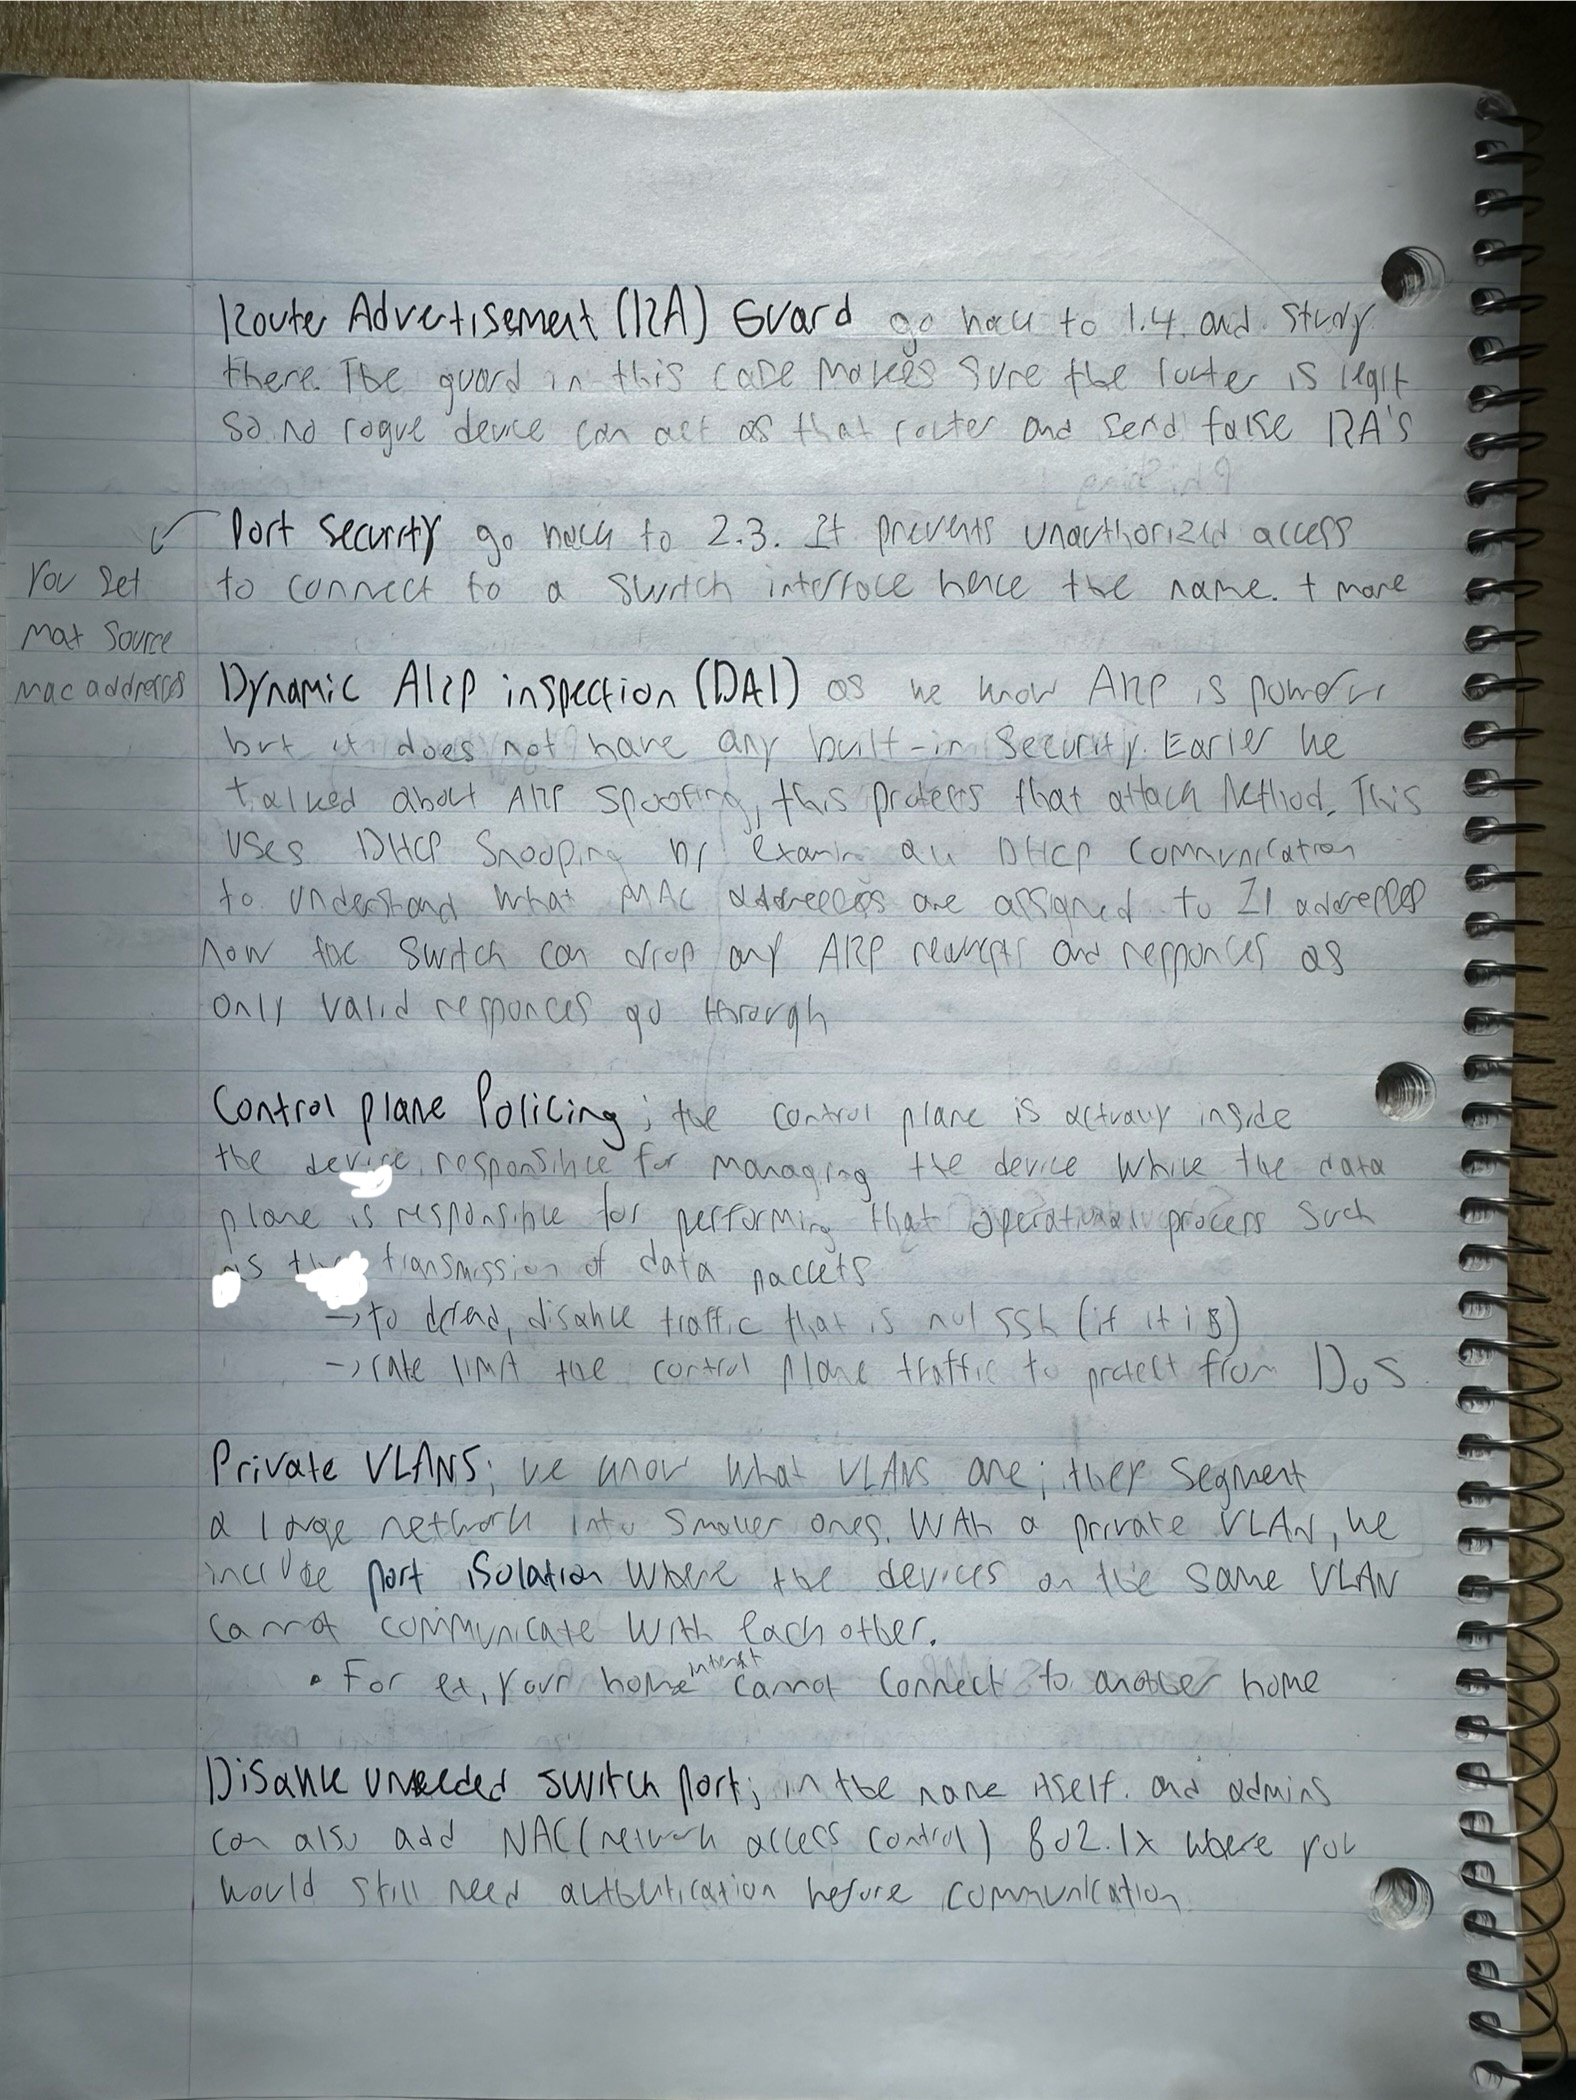 Router Advertisement (RA) Guard go back to 1.4. and study
there. The guard in this case makes sure the router is legit
so no rogue device can act as that router and send false RA's
Port Security go back to 2.3. It prevents unauthorized access
to connect to a switch interface hence the name. + more
You set
max source
mac addresses
Dynamic ARP inspection (DAI) as we know ARP is powerful
but it does not have any built-in security. Earlier we
talked about ARP spoofing, this protects that attack method. This
uses DHCP Snooping by examing all DHCP communication
to understand what MAC addresses are assigned to IP addresses
now the switch can drop any ARP requests and responces as
only valid responces go through
Control plane Policing; the control plane is actually inside
the device, responsible for managing the device while the data
plane is responsible for performing that operational process such
as the transmission of data packets
→ to defend, disable traffic that is not SSH (if it is)
→ rate limit the control plane traffic to protect from DoS.
Private VLANS; we know what VLANs are; they segment
a large network into smaller ones. With a private VLAN, we
include port isolation where the devices on the same VLAN
cannot communicate with each other.
• For ex, your home internet cannot connect to another home
Disable unneeded switch port; in the name itself. and admins
can also add NAC (network access control) 802.1x where you
would still need authentication before communication